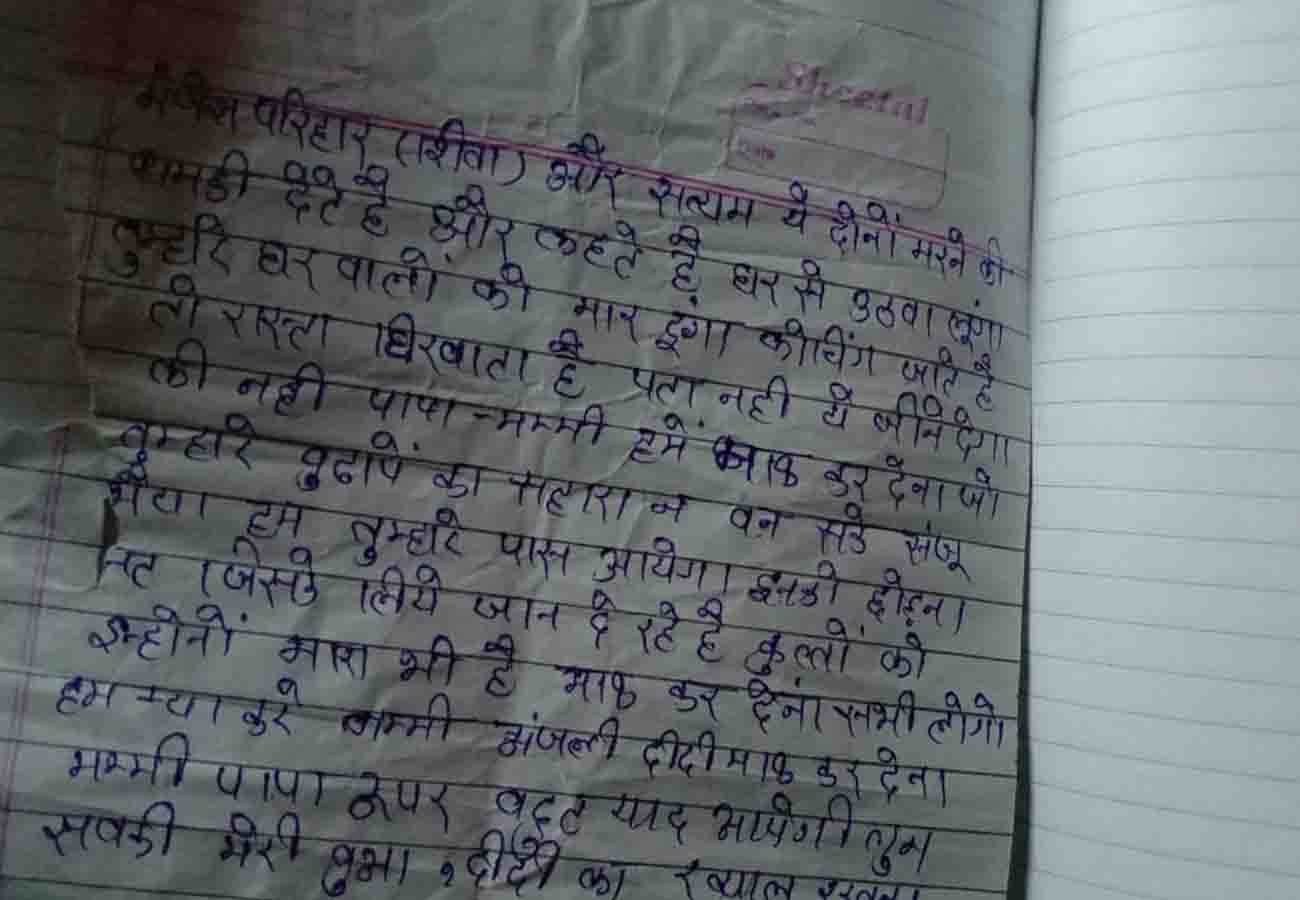 Sheetal
Date
परिहार (रीवा) और सत्यम ये दोनों मरने की
धामकी देते है और कहते है घर से उठवा लूंगा
तुम्हारे घर वालों को मार दूंगा कोचिंग जाते है
तो रास्ता घिरवाता है पता नही ये जीने देगा
की नही पापा-मम्मी हमें माफ कर देना जो
तुम्हारे बुढापें का सहारा न बन सके संजू
भैया हम तुम्हारे पास आयेगा इनको छोड़ना
जिसके लिये जान दे रहे है कुत्तों को
इन्होनों मारा भी है माफ कर देनां सभी लोगो
हम क्या करे मम्मी अंजली दीदी माफ कर देना
मम्मी पापा बहुत याद आयेगी तुम
सबकी मेरी बुआ दीदी का ख्याल रखना